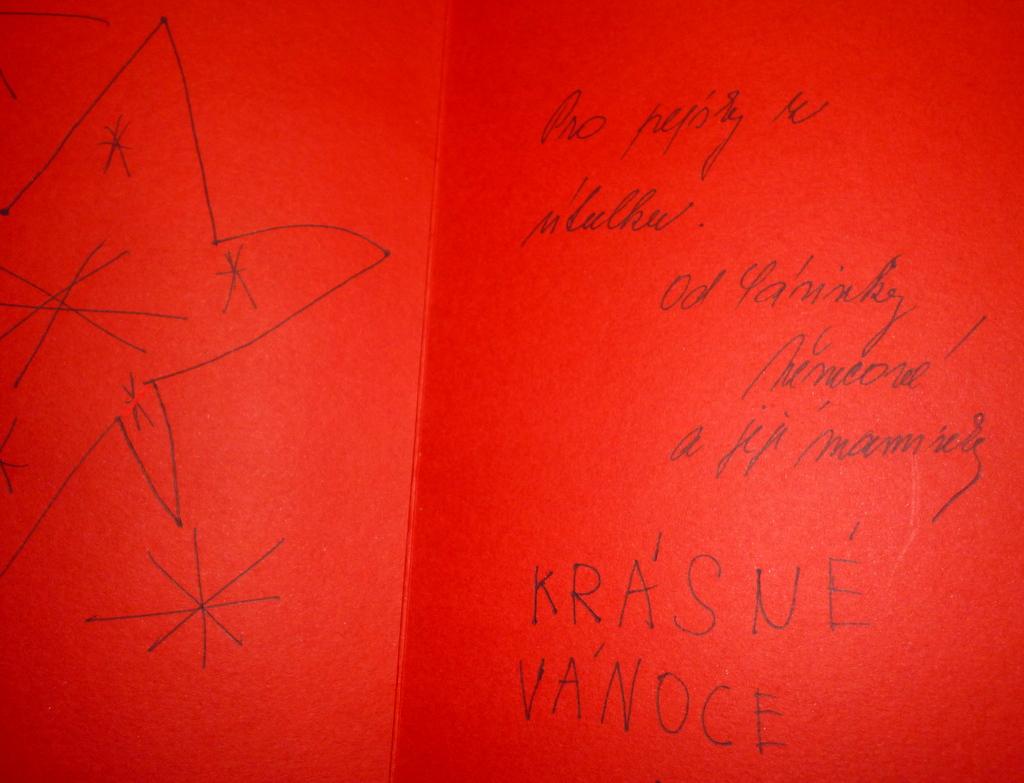 Pro pejsky v
útulku.
Od Sárinky
Němcové
a její maminky
KRÁSNÉ
VÁNOCE